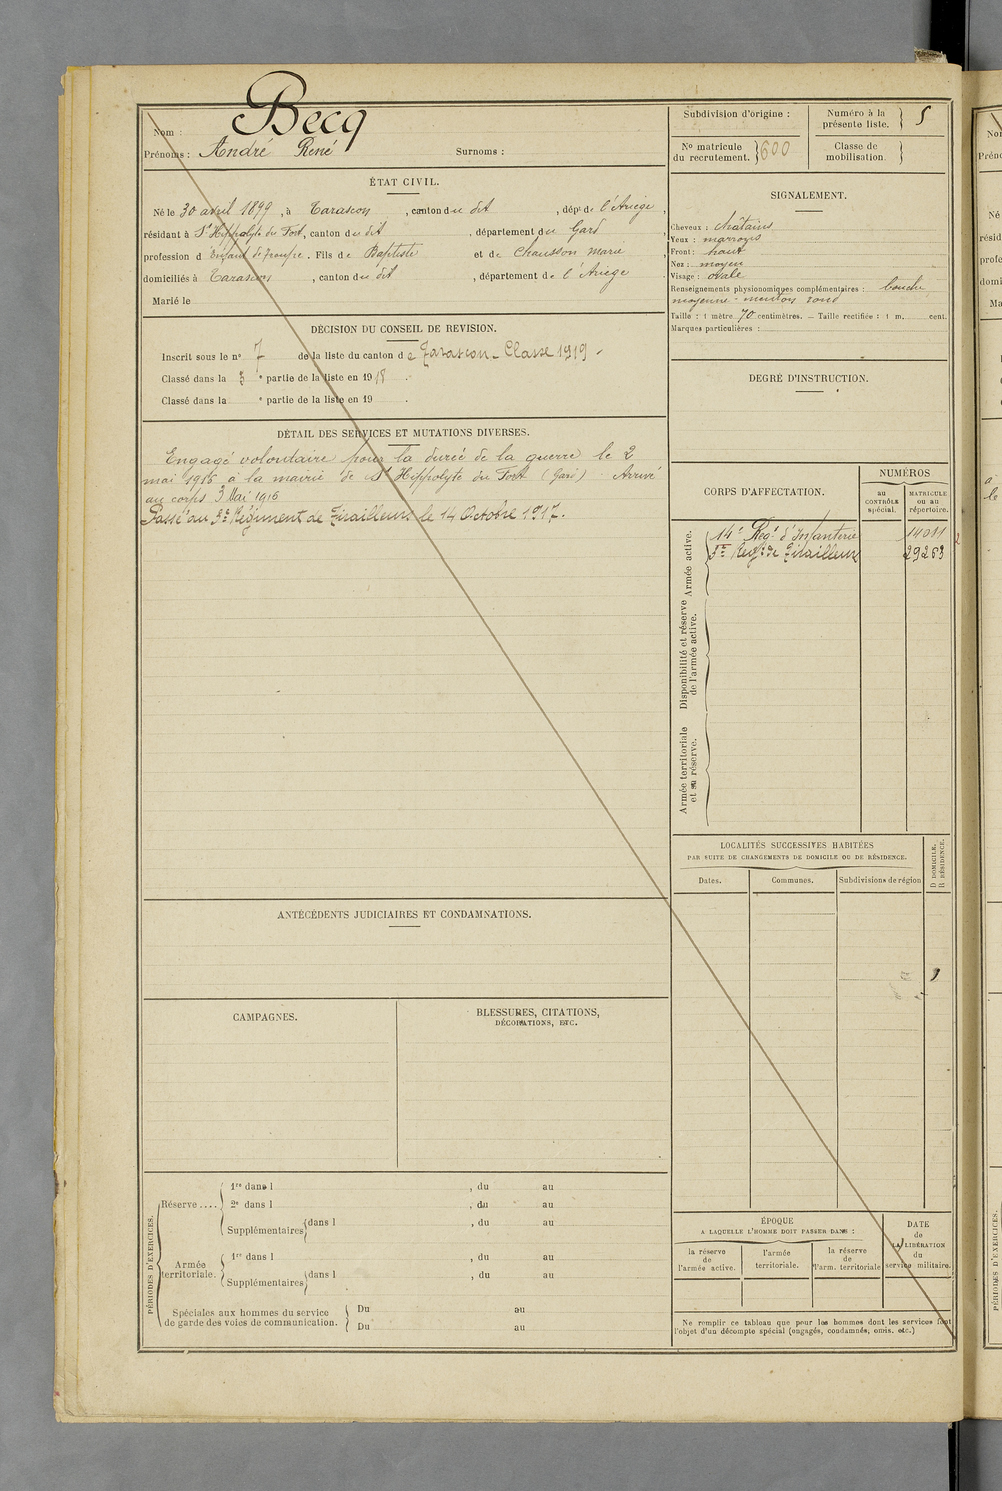 Nom : Becq
Prénoms : André René Surnoms :
ÉTAT CIVIL.
Né le 30 avril 1899, à Tarascon, canton du dit, dépt de l'Ariège,
résidant à St Hippolyte du Fort, canton du dit, département du Gard
profession d'Enfant de troupe. Fils de Baptiste et de Chausson Marie
domiciliés à Tarascon, canton du dit, département de l'Ariège
Marié le
DÉCISION DU CONSEIL DE REVISION.
Inscrit sous le no 7 de la liste du canton de Tarascon - Classe 1919.
Classé dans la 5e partie de la liste en 1918.
Classé dans la e partie de la liste en 19 .
DÉTAIL DES SERVICES ET MUTATIONS DIVERSES.
Engagé volontaire pour la durée de la guerre le 2
mai 1916 à la mairie de St Hippolyte du Fort (Gard) Arrivé
au corps 3 Mai 1916
Passé au 5e Régiment de Tirailleurs le 14 Octobre 1917.
ANTÉCÉDENTS JUDICIAIRES ET CONDAMNATIONS.
CAMPAGNES.
BLESSURES, CITATIONS,
DÉCORATIONS, ETC.
PÉRIODES D'EXERCICES.
Réserve ....
1re dans l , du au
2e dans l , du au
Supplémentaires dans l , du au
Armée
territoriale.
1re dans l , du au
Supplémentaires dans l , du au
Spéciales aux hommes du service
de garde des voies de communication.
Du au
Du au
Subdivision d'origine :
Numéro à la
présente liste. 5
No matricule
du recrutement. 600
Classe de
mobilisation.
SIGNALEMENT.
Cheveux : châtains
Yeux : marrons
Front : haut
Nez : moyen
Visage : ovale
Renseignements physionomiques complémentaires : bouche
moyenne - menton rond
Taille : 1 mètre 70 centimètres. — Taille rectifiée : 1 m. cent.
Marques particulières :
DEGRÉ D'INSTRUCTION.
CORPS D'AFFECTATION.
NUMÉROS
au
CONTRÔLE
spécial.
MATRICULE
ou au
répertoire.
Armée active.
14e Régt d'Infanterie 14011
5e Regt de Tirailleurs 29263
Disponibilité et réserve
de l'armée active.
Armée territoriale
et sa réserve.
LOCALITÉS SUCCESSIVES HABITÉES
PAR SUITE DE CHANGEMENTS DE DOMICILE OU DE RÉSIDENCE.
Dates.
Communes.
Subdivisions de région
D DOMICILE.
R RÉSIDENCE.
ÉPOQUE
A LAQUELLE L'HOMME DOIT PASSER DANS :
la réserve
de
l'armée active.
l'armée
territoriale.
la réserve
de
l'arm. territoriale
DATE
de
LA LIBÉRATION
du
service militaire.
Ne remplir ce tableau que pour les hommes dont les services font
l'objet d'un décompte spécial (engagés, condamnés, omis. etc.)
PÉRIODES D'EXERCICES.